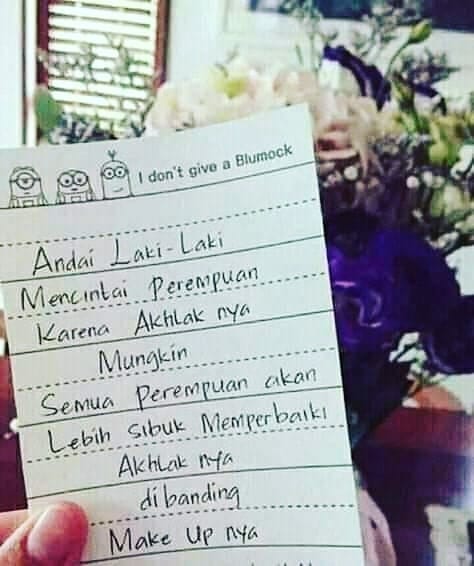 I don't give a Blumock
Andai Laki-Laki
Mencintai Perempuan
Karena Akhlak nya
Mungkin
Semua Perempuan akan
Lebih sibuk Memperbaiki
Akhlak nya
dibanding
Make Up nya